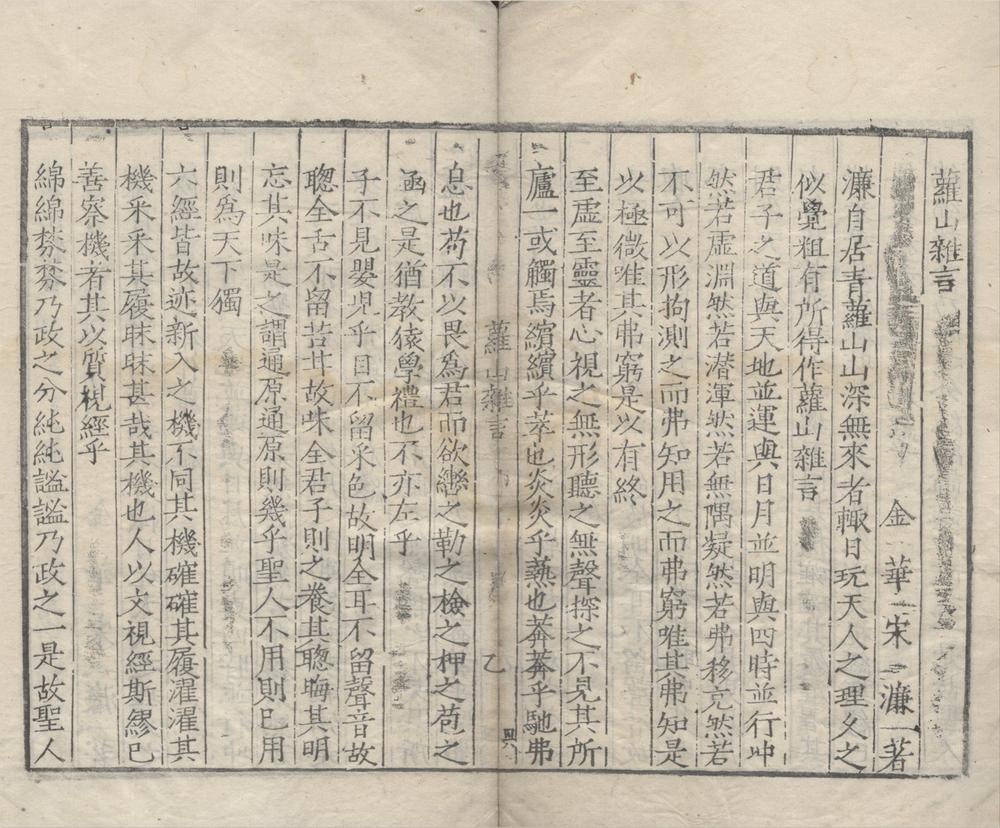 蘿山雜言
金華宋濂著
濂自居青蘿山山深無來者輙日玩天人之理久之
似覺粗有所得作蘿山雜言
君子之道與天地並運與日月並明與四時並行冲
然若虛淵然若潜渾然若無隅凝然若弗移充然若
不可以形拘測之而弗知用之而弗窮唯其弗知是
以極微唯其弗窮是以有終
至虛至靈者心視之無形聽之無聲探之不見其所
廬一或觸焉繽繽乎萃也炎炎乎𤍠也莽莽乎馳弗
蘿山雜言
乙
息也苟不以畏爲君而欲轡之勒之檢之柙之苞之
函之是猶教猿學禮也不亦左乎
子不見嬰児乎目不留采色故明全耳不留聲音故
聰全舌不留苦甘故味全君子則之養其聰晦其明
忘其味是之謂通原通原則幾乎聖人不用則已用
則爲天下獨
六經皆故迹新入之機不同其機確確其履濯濯其
機采采其履昧昧甚哉其機也人以文視經斯繆已
善察機者其以質視經乎
綿綿棼棼乃政之分純純謐謐乃政之一是故聖人